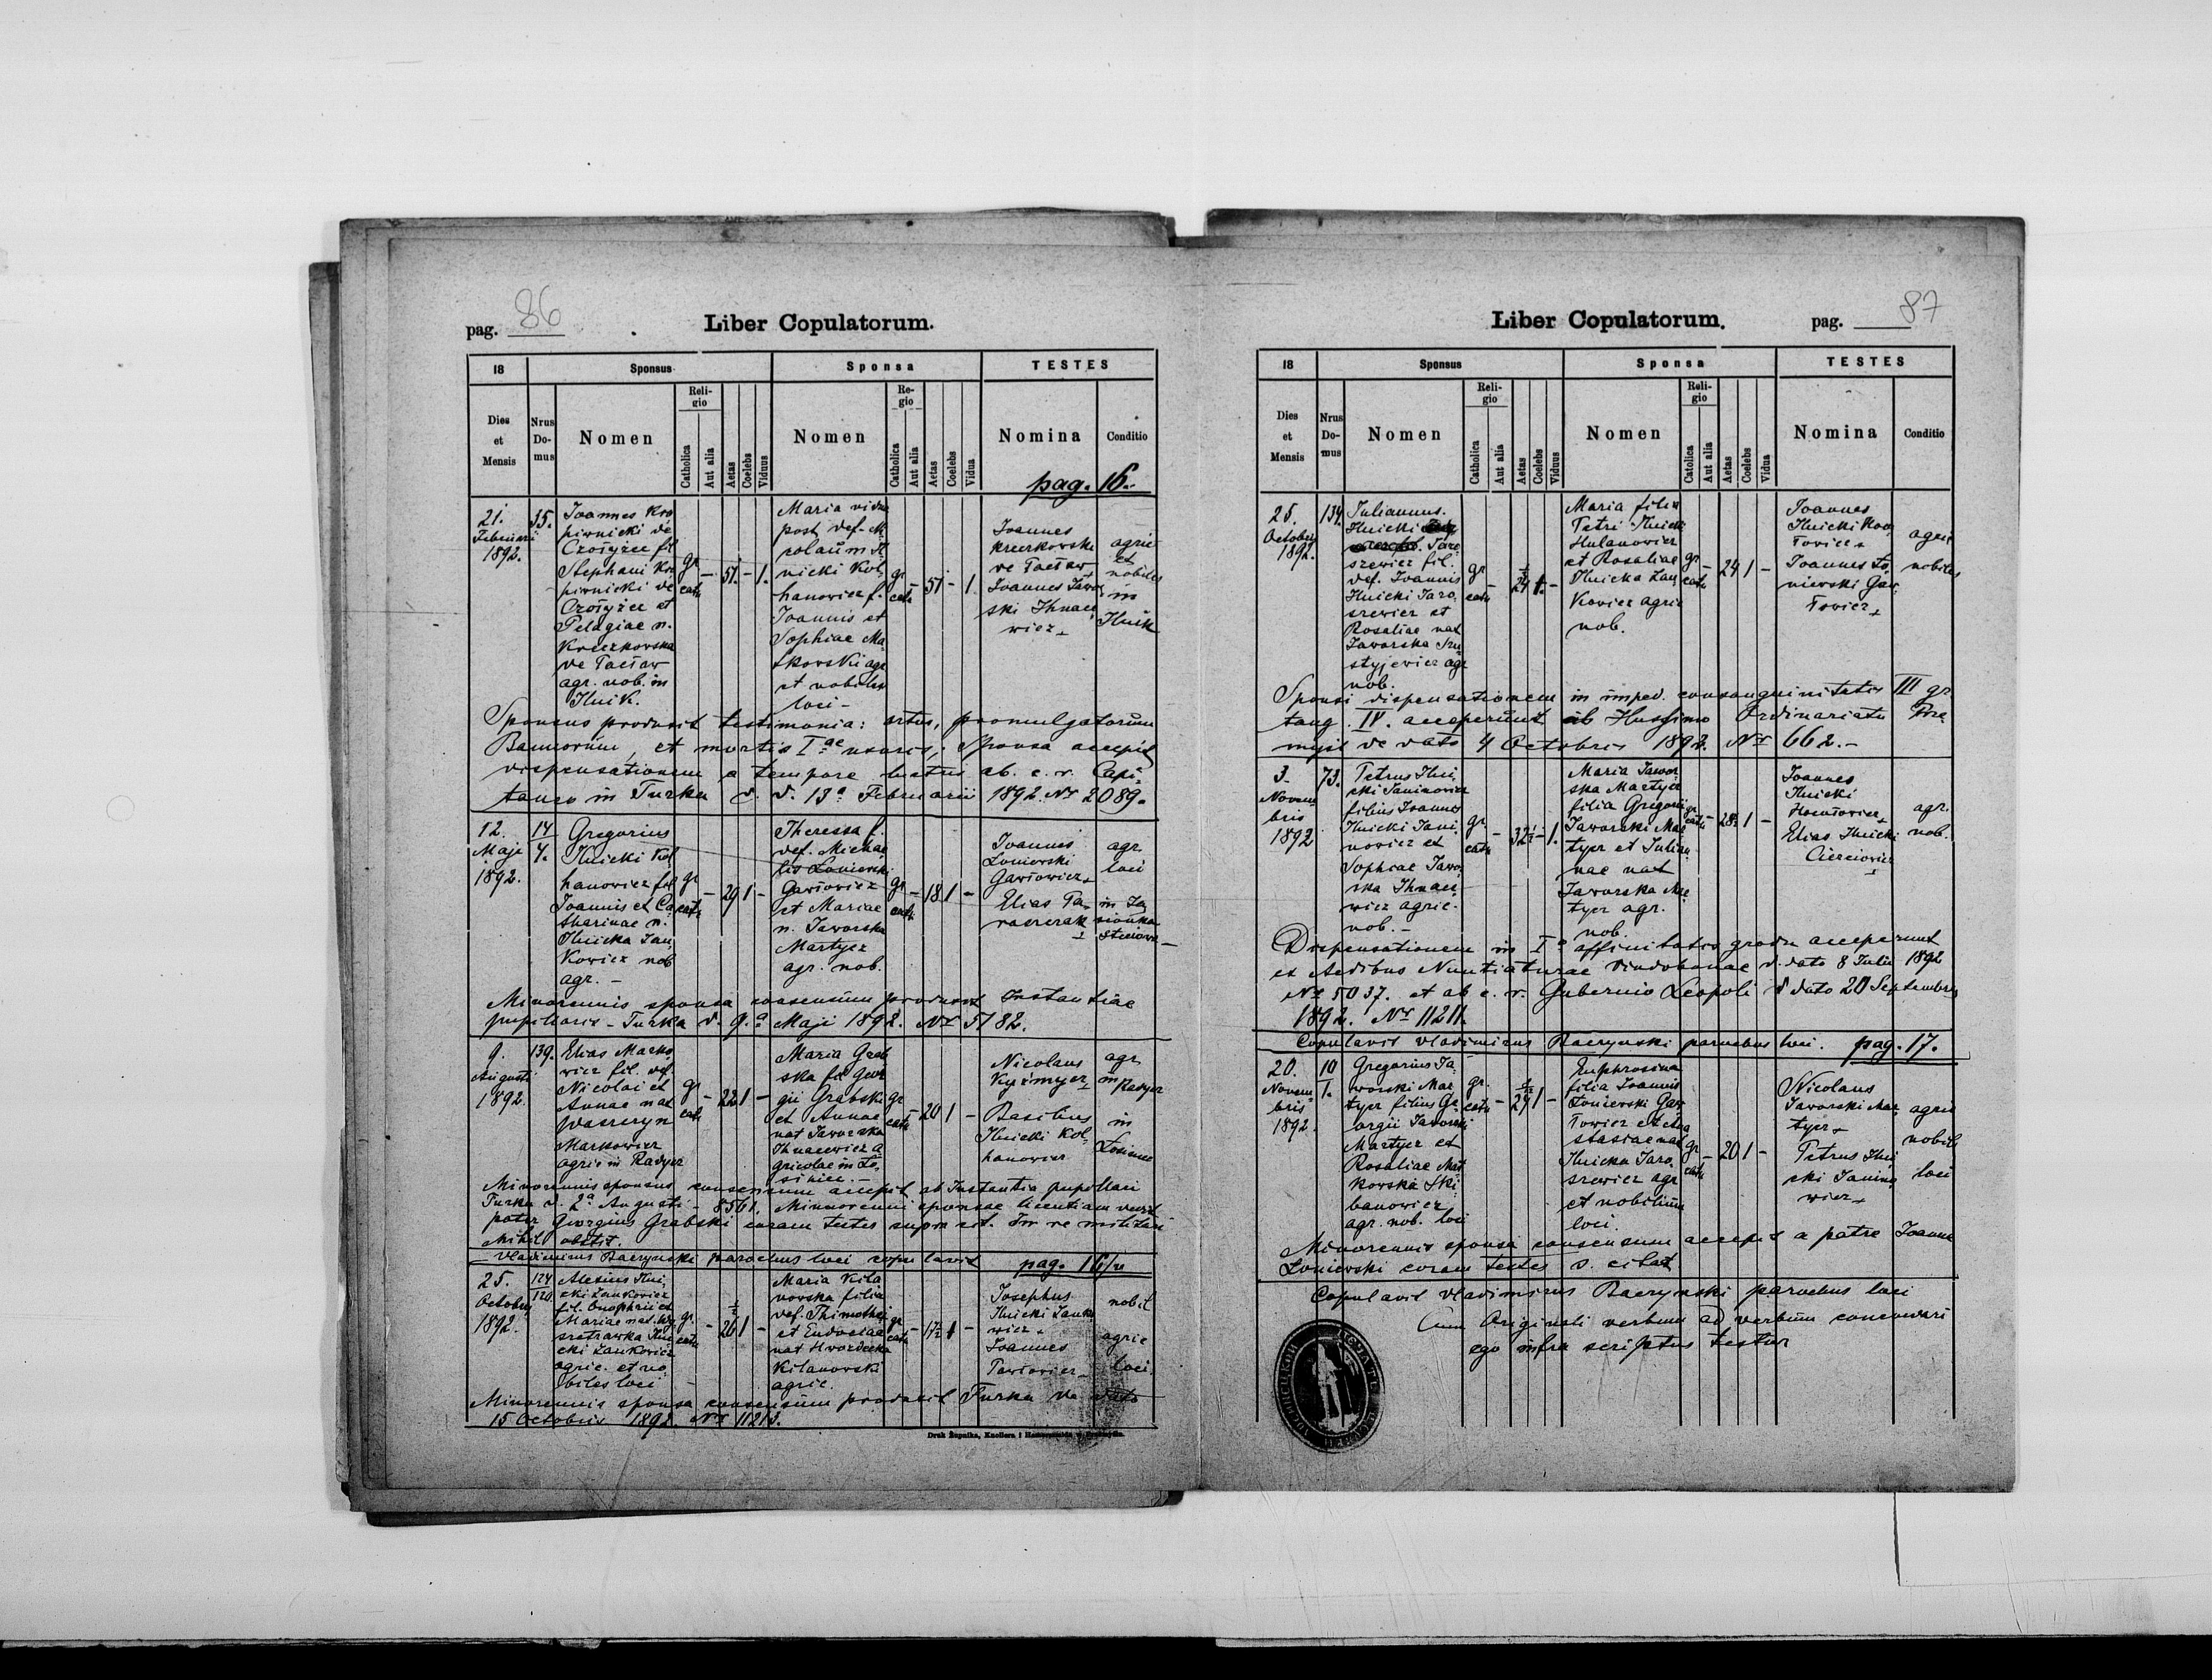 pag. 86
Liber Copulatorum.
18
Sponsus
Sponsa
TESTES
Dies et Mensis
Nrus Domus
Nomen
Religio
Catholica
Aut alia
Aetas
Coelebs
Viduus
Nomen
Religio
Catholica
Aut alia
Aetas
Coelebs
Vidua
Nomina
Conditio
pag. 16.
21. Februarii 1892.
35.
Joannes Kro
piwnicki de
Czołyżec fil
Stephani Kro
piwnicki de
Czołyżec et
Pelagiae n.
Kruszkowska
de
agr. nob. in
Ilnik.
gr cath
-
51.
-
1.
Maria vidua
post def. Ni
colaum Il
nicki Kol
hanowicz f.
Joannis et
Sophiae Ma
tkovski agr
et nobiles
loci -
gr cath
-
51
-
1
Joannes
de
Joannes Jawor
ski Ihnace
wicz
agric
et
nobiles
in
Ilnik
Sponsus produxit testimonia: ortus, promulgatorum
Bannorum, et mortis Iae uxoris; Sponsa accepit
dispensationem a tempore luctus ab. c. r. Capi
taneo in Turka d. d. 13a Februarii 1892. Nr 2089.
12. Maji 1892.
14
4.
Gregorius
Ilnicki Kol
hanowicz fil
Joannis et Ca
tharinae n.
Ilnicka Zan
Kowicz nob
agr. -
gr cath
-
29
1
-
Theressa f.
def. Michae
lis Łoniewski
Gawłowicz
et Mariae
n. Jaworska
Martycz
agr. nob.
gr cath
-
18
1
-
Joannes
Łoniewski
Gawłowicz
Elias Ta
raszczak
agr.
loci
in Ja
sionka
Steciowa
Minorennis sponsa consensum produxit Instantiae
pupillaris - Turka d. 9.a Maji 1892. Nr 5182.
9. Augusti 1892.
139.
Elias Marko
wicz fil. def.
Nicolai et
Annae nat
Markowicz
agric in Radycz
gr cath
-
22
1
-
Maria Grab
ska fil Geor
gii Grabski
et Annae
nat Jaworska
Ihnacewicz a
gricolae in Ło
siniec. -
gr cath
-
20
1
-
Nicolaus
Basilius
Ilnicki Kol
hanowicz
agr
in Radycz
in
Łosiniec
Minorennis sponsus consensum accepit ab Instantia pupillari
Turka d. 2a Augusti - 8561. Minorenni sponsae licentiam dedit
pater Georgius Grabski coram testes supra cit. In re militari
nihil obstit.
Vladimirus Baczynski parochus loci copulavit
pag. 16/v
25. Octobris 1892.
124
120
Alexius Ilni
cki Zankowicz
fil. Onophrii et
Mariae nat. Wy
Ilni
cki Zankowicz
agric. et no
biles loci
gr. cath
-
26 1/2
1
-
Maria Kila
novska filia
def. Thimothei
et Eudociae
nat
Kilanovski
agric.
gr cath
-
17 1/2
1
-
Josephus
Ilnicki Zanko
wicz
Joannes
nobil
agric
loci.
Minorennis sponsa consensum produxit Turka de dato
15 Octobris 1892. Nr 11213.
Druk Żupnika, Knollera i Hammerschmidta w Przemyślu.
Liber Copulatorum.
pag. 87
18
Sponsus
Sponsa
TESTES
Dies et Mensis
Nrus Domus
Nomen
Religio
Catholica
Aut alia
Aetas
Coelebs
Viduus
Nomen
Religio
Catolica
Aut alia
Aetas
Coelebs
Vidua
Nomina
Conditio
25. Octobris 1892.
134.
Iuliannus.
Ilnicki
Jaro
szewicz fil.
def. Joannis
Ilnicki Jaro
szewicz et
Rosaliae nat
Jaworska
agr
nob.
gr cath
-
24 1/2
1.
-
Maria filia
Petri Ilnicki
Hulanowicz
et Rosaliae
Ilnicka Zan
Kowicz agric
nob.
gr cath
-
24
1
-
Joannes
Ilnicki
Joannes Ło
niewski Gaw
łowicz
agric
nobiles
Sponsi dispensationem in imped. consanguinitatis III gr.
tang. IV. acceperunt ab Illussimo Ordinariatu Prze
mysl de dato 4 Octobris 1892. Nr 662. -
3. Novembris 1892
73.
Petrus Ilni
cki Janinowicz
filius Joannes
Ilnicki Jani
nowicz et
Sophiae Jawo
rska Ihnace
wicz agric.
nob. -
gr cath
-
32 1/2
-
1.
Maria Jawor
ska Martycz
filia Gregorii
Jaworski Mar
tycz et Julian
nae nat
Jaworska Mar
tycz agr.
nob.
gr cath
-
28
1
-
Joannes
Ilnicki
Elias Ilnicki
agr.
nob.
Dispensationem in Io affinitatis gradu acceperunt
ex Aedibus Nuntiaturae Vindobonae d. dato 8 Julii 1892
Nr 5037. et ab c. r. Gubernio Leopoli d dato 20 Septembris
1892. Nr 11211.
Copulavit Vladimirus Baczynski parochus loci. pag. 17.
20. Novembris 1892.
10
1.
Gregorius Ja
worski Mar
tycz filius Ge
orgii Jaworski
Martycz et
Rosaliae Mat
kovska Ski
banowicz
agr. nob. loci
gr. cath
-
24 1/2
1
-
Euphrosina
filia Joannis
Łoniewski Gaw
łowicz et Ana
stasiae nat
Ilnicka Jaro
szewicz agr
et nobilium
loci.
gr cath
-
20
1
-
Nicolaus
Jaworski Mar
tycz
Petrus Ilni
cki Janino
wicz
agric
nobiles
loci
Minorennis sponsa consensum accepit a patre Joanne
Łoniewski coram testes s. citat
Copulavit Vladimirus Baczynski parochus loci
Cum Originali verbum ad verbum concordari
ego infra scriptus testor